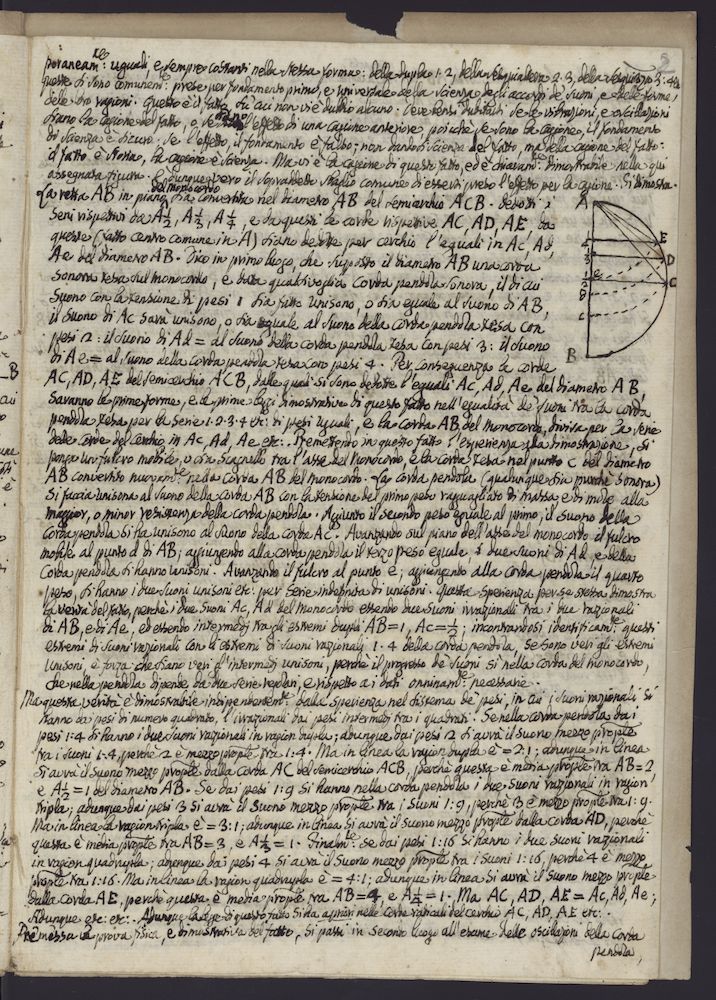 poraneam: uguali, e sempre costanti nella stessa forma: della dupla 1·2, della sesquialtera 2·3, della sesquiterza 3:4
queste si sono comunem: prese per fondamento primo, e universale della scienza degli accordi de' suoni, e delle forme,
delle loro ragioni. Questo è il fatto, su cui non vi è dubbio alcuno. Deve bensì se le vibrazioni, e oscillazioni
siano la cagione del fatto, o l'effetto di una cagione anteriore, poiché se sono la cagione, il fondamento
di scienza è sicuro. Se l'effetto, il fondamento è falso; non dandosi scienza del fatto, ma della cagione del fatto:
il fatto è storia, la cagione è scienza. Ma vi è la cagione di questo fatto, ed è dimostrabile nella qui
assegnata figura. E dunque vero il sopradetto sbaglio comune di essersi preso l'effetto per la cagione. Si dimostra.
La retta AB in piano del monocordo sia convertita nel diametro AB del semicerchio ACB. Dedotti i
seni rispettivi da A½, A⅓, A¼, e da questi le corde rispettive AC, AD, AE, da
queste (fatto centro comune in A) siano dedotte per cerchio l'eguali in Ac, Ad,
Ae del diametro AB. Dico in primo luogo, che supposto il diametro AB una corda
sonora tesa sul monocordo, e data qualsivoglia corda pendola sonora, il di cui
suono con la tensione di pesi 1 sia fatto unisono, o sia eguale al suono di AB,
il suono di Ac sarà unisono, o sia eguale al suono della corda pendola tesa con
pesi 2: il suono di Ad = al suono della corda pendola tesa con pesi 3: il suono
di Ae = al suono della corda pendola tesa con pesi 4. Per conseguenza le corde
AC, AD, AE del semicerchio ACB, dalle quali si sono dedotte l'eguali Ac, Ad, Ae del diametro AB,
saranno le prime forme, e le prime leggi dimostrative di questo fatto nell'egualità de' suoni tra la corda
pendola tesa per la serie 1·2·3·4 etc: di pesi uguali, e la corda AB del monocordo, divisa per la serie
delle corde del cerchio in Ac, Ad, Ae etc. Premettendo in questo fatto l'esperienza alla dimostrazione, si
ponga un fulcro mobile, o sia scagnello tra l'asse del monocordo, e la corda tesa nel punto C del diametro
AB convertito nella corda AB del monocordo. La corda pendola (qualunque sia purché sonora)
si faccia unisona al suono della corda AB con la tensione del primo peso ragguagliato di massa, e di mole alla
maggior, o minor resistenza della corda pendola. Aggiunto il secondo peso eguale al primo, il suono della
corda pendola si fa unisono al suono della corda AC. Avanzando sul piano dell'asse del monocordo il fulcro
mobile al punto d di AB, aggiungendo alla corda pendola il terzo peso eguale, i due suoni di Ad, e della
corda pendola si hanno unisoni. Avanzando il fulcro al punto e; aggiungendo alla corda pendola il quarto
peso, si hanno i due suoni unisoni etc: per serie indefinita di unisoni. Questa sperienza per se stessa dimostra
la verità del fatto, perché i due suoni Ac, Ad del monocordo essendo due suoni irrazionali tra i due razionali
di AB, e di Ae, ed essendo intermedj tra gli estremi dupli AB=1, Ae=½; incontrandosi questi
estremi di suoni razionali con li estremi di suoni razionali 1·4 della corda pendola, se sono veri gli estremi
unisoni, è forza che siano veri gl'intermedj unisoni, perché il progresso de' suoni sì nella corda del monocordo,
che nella pendola dipende da due serie regolari, e rispetto a i dati onninam.te necessarie.
Ma questa verità è dimostrabile indipendentem.te dalla sperienza nel sistema de' pesi, in cui i suoni razionali si
hanno da' pesi di numero quadrato, l'irrazionali da' pesi intermedj tra i quadrati. Se nella corda pendola dai
pesi 1·4 si hanno i due suoni razionali in ragion dupla; adunque dai pesi 2 si avrà il suono mezzo propte
tra i suoni 1·4, perché 2 è mezzo propte tra 1:4. Ma in linea la ragion dupla è =2:1; adunque in linea
si avrà il suono mezzo propte dalla corda AC del semicerchio ACB, perché questa è media propte tra AB=2
e A½=1 del diametro AB. Se dai pesi 1:9 si hanno nella corda pendola i due suoni razionali in ragion
tripla; adunque dai pesi 3 si avrà il suono mezzo propte tra i suoni 1:9, perché 3 è mezzo propte tra 1:9.
Ma in linea la ragion tripla è =3:1; adunque in linea si avrà il suono mezzo propte dalla corda AD, perché
questa è media propte tra AB=3, e A⅓=1. Finalm.te se dai pesi 1:16 si hanno i due suoni razionali
in ragion quadrupla; adunque dai pesi 4 si avrà il suono mezzo propte tra i suoni 1:16, perché 4 è mezzo
propte tra 1:16. Ma in linea la ragion quadrupla è =4:1; adunque in linea si avrà il suono mezzo propte
dalla corda AE, perché questa è media propte tra AB=4, e A¼=1. Ma AC, AD, AE = Ac, Ad, Ae;
Adunque etc: etc: Adunque la legge di questo fatto si dà a priori nelle corde radicali del cerchio AC, AD, AE etc.
Premessa la prova fisica, e dimostrativa del fatto, si passi in secondo luogo all'esame delle oscillazioni della corda
pendola,
A
E
D
C
B